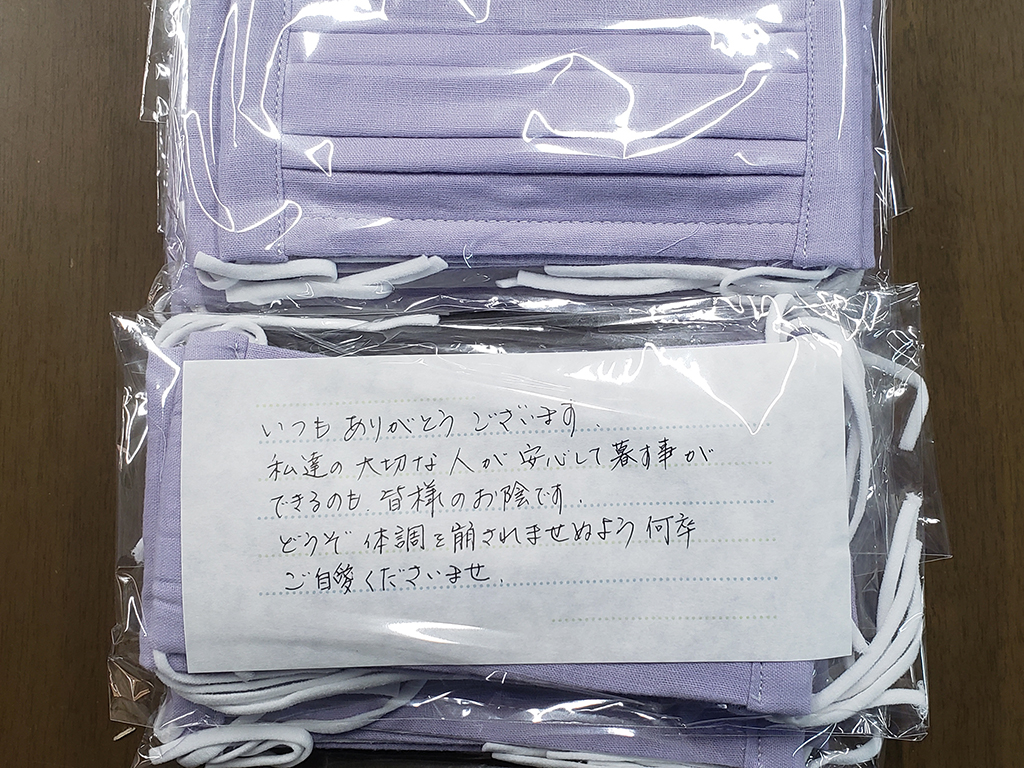 いつもありがとうございます.
私達の大切な人が安心して暮す事が
できるのも、皆様のお陰です.
どうぞ体調を崩されませぬよう何卒
ご自愛くださいませ.